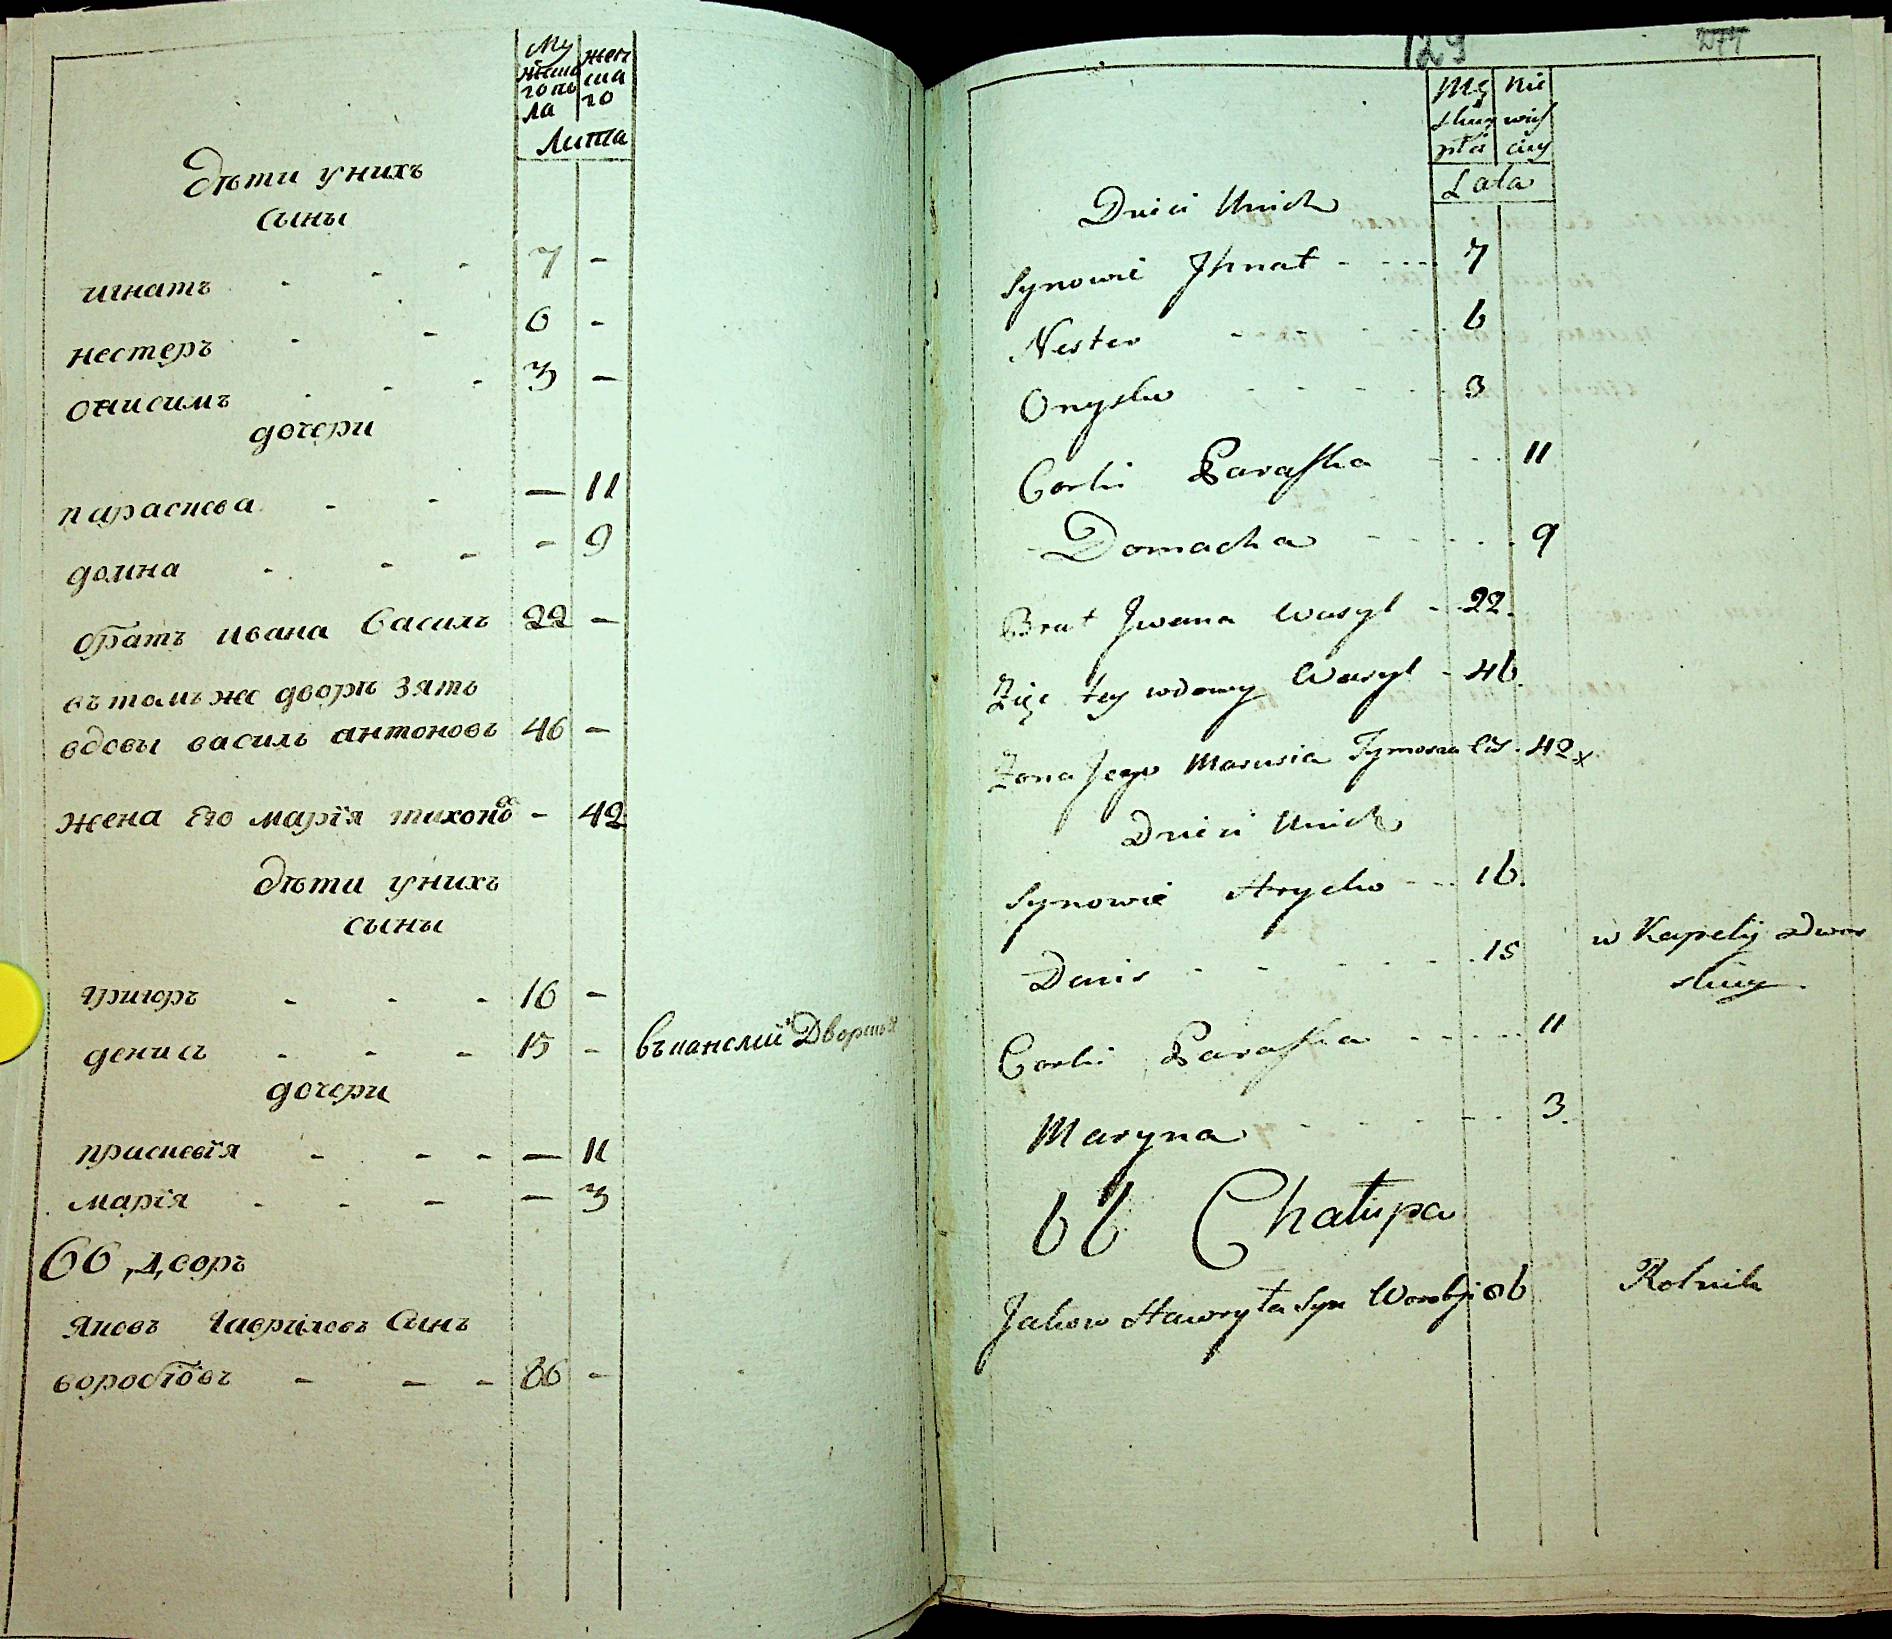 Му
жеска
го по
ла
жен
ска
го
Лѣта
дѣти у нихъ
сыны
игнатъ - - - 7 -
нестеръ - - 6 -
онисимъ - - - 3 -
дочери
параскева - - — 11
домна - - - - 9
братъ ивана василь 22 -
въ томъ же дворѣ зять
вдовы василь антоновъ 46 -
жена его марїя тихонова - 42
дѣти у нихъ
сыны
григоръ - - - 16 -
денисъ - - - 15 - въ капелїи Дворной
дочери
прасковїя - - - — 11
марїя - - - — 3
66 дворъ
яковъ гаврилов сынъ
воробїовъ - - - 86 -
129
Mę
skiey
płci
Nie
wieś
ciey
Lata
Dzieci Unich
Synowie Ihnat - - - - 7
Nester - - 6
Onysko - - - - 3
Corki Paraska - - - 11
Domacha - - - - - 9
Brat Iwana Wasyl - - 22.
Zięć tey wdowy Wasyl - 46.
Zona Jego Marusia Tymosza Cór. 42 x
Dzieci Unich
Synowie Hrycko - - - 16.
Denis - - - - - - 15 w Kapelij Dwor
służy
Corki Paraska - - - - - 11
Maryna - - - - - 3.
66 Chałupa
Jakow Hawryła Syn Worobji 86 Rolnik